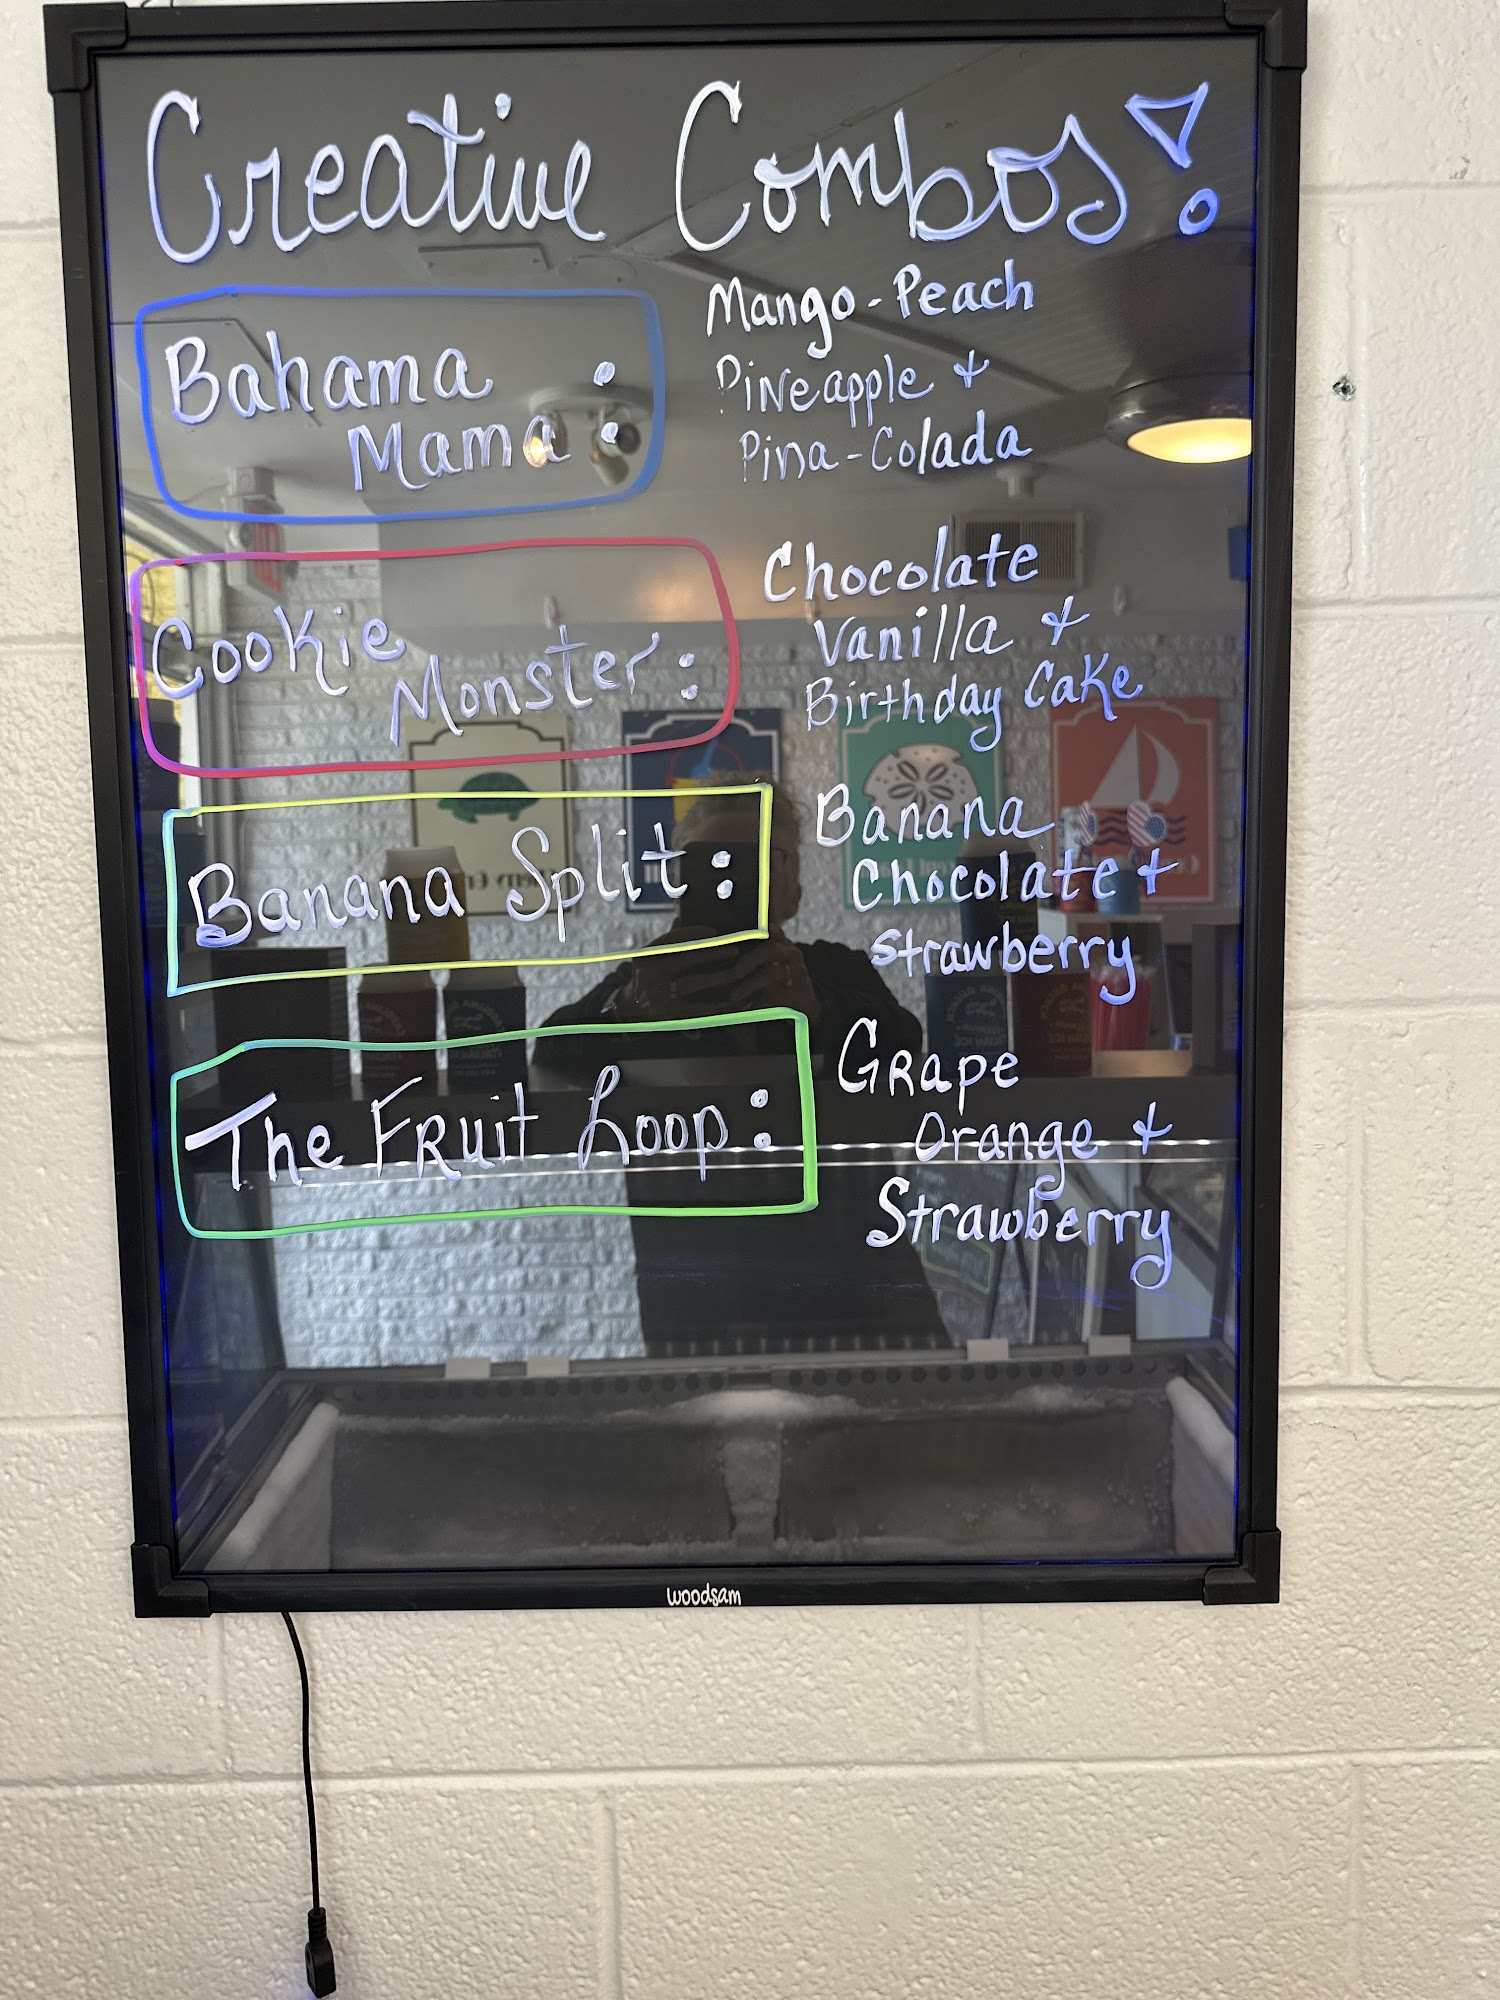 Creative Combos!
Bahama
Mama :
Mango-Peach
Pineapple +
Pina-Colada
Cookie
Monster :
Chocolate
Vanilla +
Birthday Cake
Banana Split :
Banana
Chocolate +
Strawberry
The Fruit Loop :
Grape
Orange +
Strawberry
woodsam